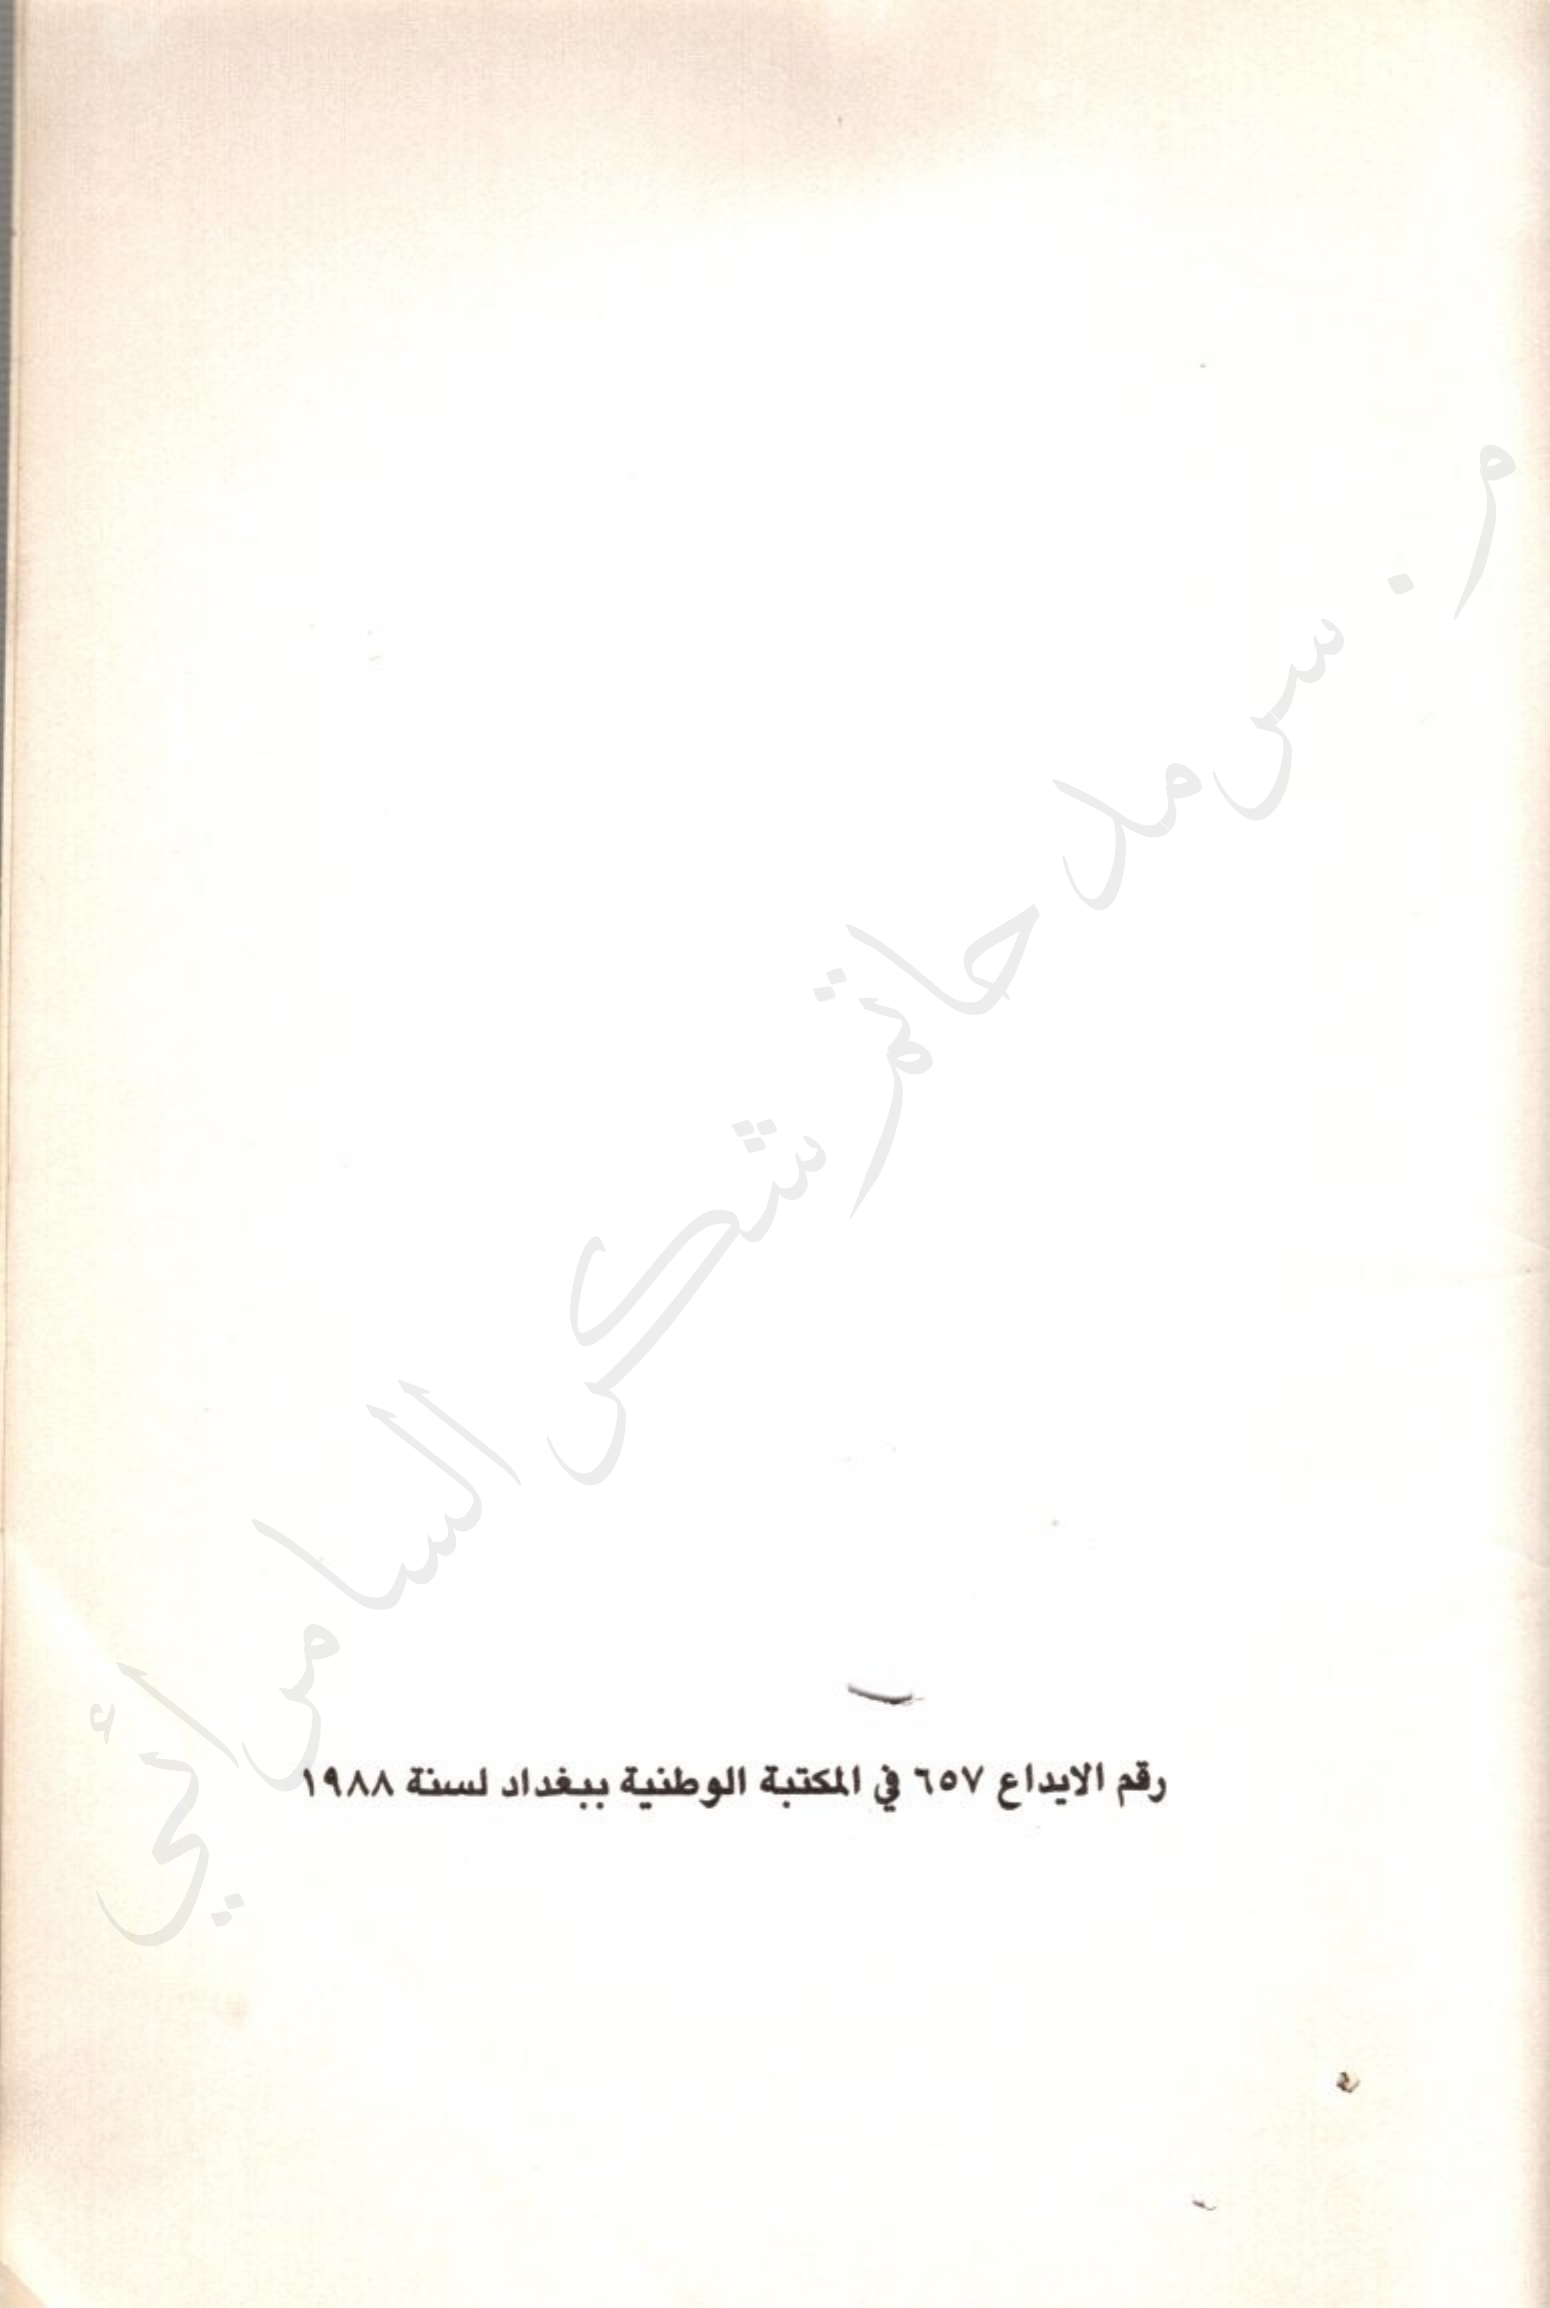 م. سرمد حاتم شكر السامرائي
رقم الايداع ٦٥٧ في المكتبة الوطنية ببغداد لسنة ١٩٨٨